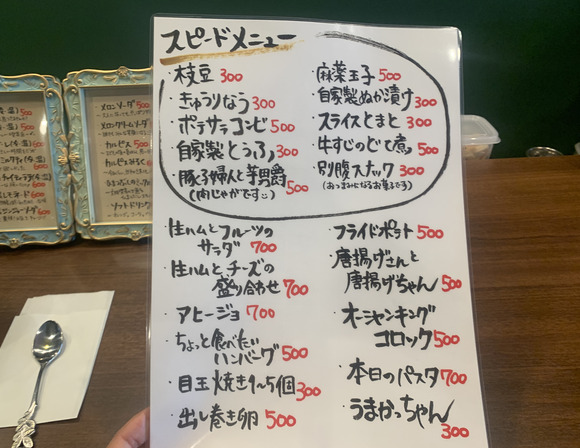 スピードメニュー
・枝豆 300
・きゅうりなう 300
・ポテサラコンビ 500
・自家製とうふ 300
・豚子婦人と芋男爵 500
(肉じゃがです
・麻薬玉子 500
・自家製ぬか漬け 300
・スライスとまと 300
・牛すじのどて煮 500
・別腹スナック 300
(おつまみになるお菓子です)
・生ハムとフルーツの
サラダ 700
・生ハムとチーズの
盛り合わせ 700
・アヒージョ 700
・ちょっと食べたい
ハンバーグ 500
・目玉焼き1〜5個 300
・出し巻き卵 500
・フライドポテト 500
・唐揚げさんと
唐揚げちゃん 500
・オーシャンキング
ゴロック 500
・本日のパスタ 700
・うまかっちゃん
300
メロンソーダ 500
メロンクリームソーダ
カルピス 500